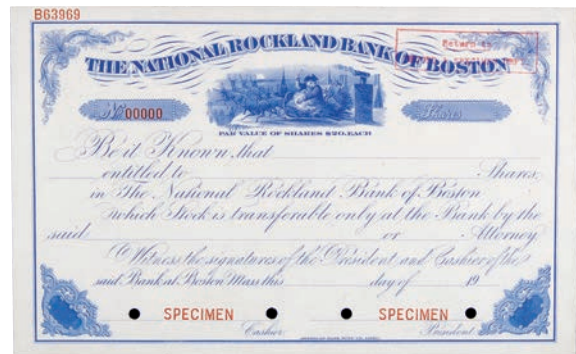 B63969
Return to
THE NATIONAL ROCKLAND BANK OF BOSTON
No. 00000
Shares
PAR VALUE OF SHARES $20. EACH
Be it Known that
entitled to Shares,
in The National Rockland Bank of Boston
which Stock is transferable only at the Bank by the
said or Attorney
Witness the signatures of the President and Cashier of the
said Bank at Boston Mass this day of 19
SPECIMEN SPECIMEN
Cashier President